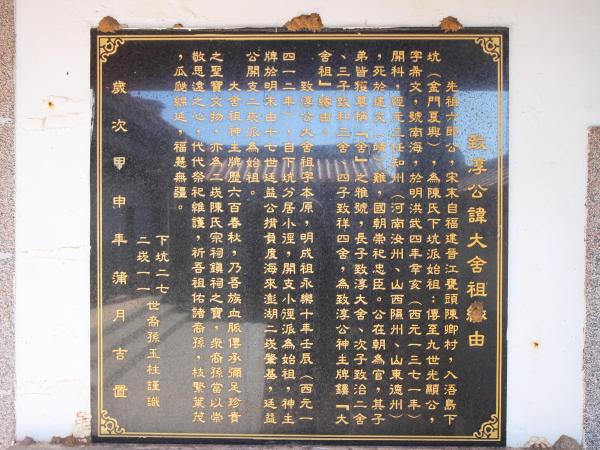 致淳公諱大舍祖緣由
先祖六郎公，宋末自福建晉江甕頭陳卿村，入浯島下
坑（金門夏興），為陳氏下坑派始祖；傳至九世光顯公，
字希文，號南海，於明洪武四年辛亥（西元一三七一年）
開科，經元三任知州（河南汝州、山西隰州、山東德州）
，死於建文（靖）難，國朝崇祀忠臣。公在朝為官，其子
弟皆獲尊稱『舍』之雅號，長子致淳大舍、次子致治二舍
、三子致和三舍、四子致祥四舍，為致淳公神主牌鐫『大
舍祖』緣由。
致淳公大舍祖字本原，明成祖永樂十年壬辰（西元一
四一二年），自下坑分居小徑，開支小徑派為始祖，神主
牌於明末由十七世廷益公揹負度海來澎湖二崁肇基，廷益
公開支二崁派為始祖。
大舍祖神主牌歷六百春秋，乃吾族血脈傳承彌足珍貴
之聖寶文物，亦為二崁陳氏宗祠鎮祠之寶，眾裔孫當以崇
敬思遠之心，代代祭祀維護，祈吾祖佑諸裔孫，枝繁葉茂
，瓜瓞綿延，福慧無疆。
下坑二七
二崁一一
世裔孫玉柱謹識
歲次甲申年蒲月吉置